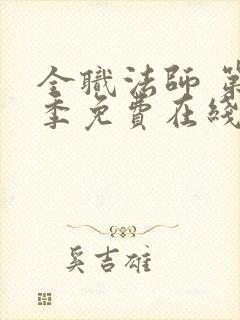 全職法師 第
季免費在綫
奚吉雄